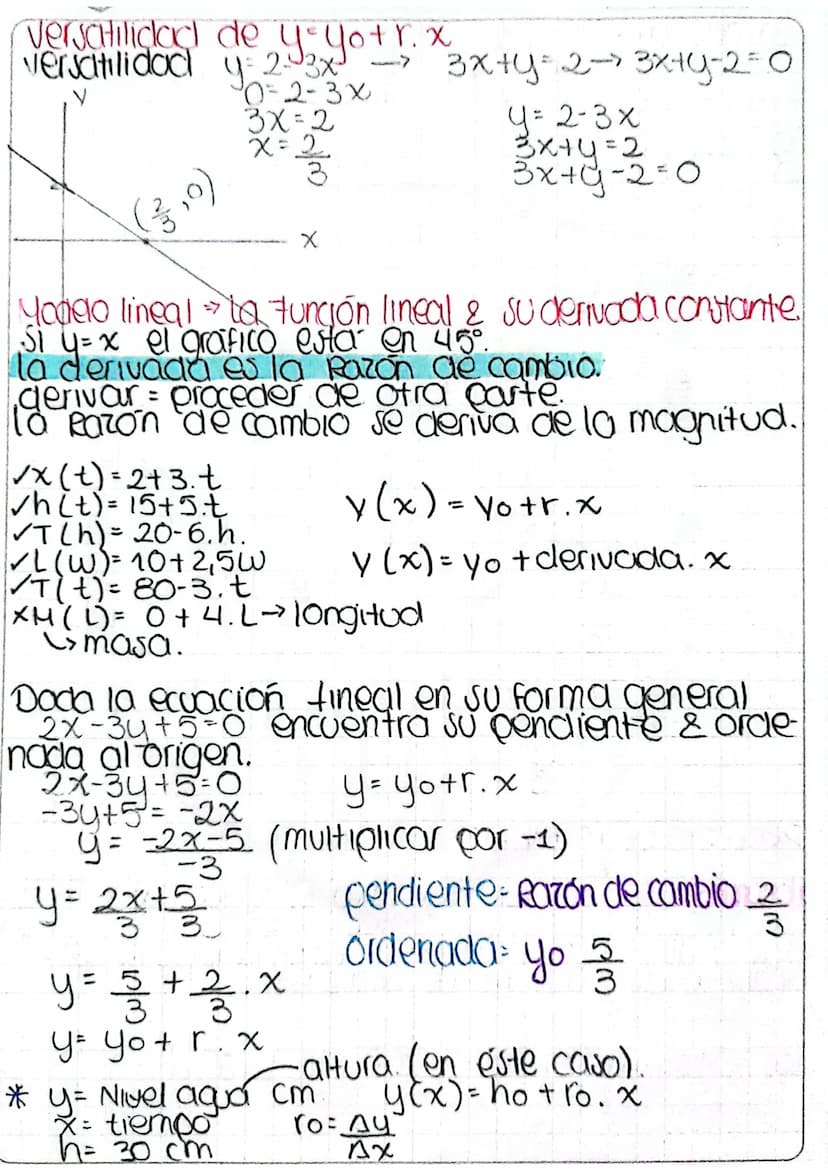 versatilidad de y=yo+r.x
versatilidad y=2-3x → 3x+y=2→3x+y-2=0
0=2-3x
3x=2
x=2/3
y=2-3x
3x+y=2
3x+y-2=0
y
(2/3,0)
x
Modelo lineal → La función lineal & su derivada constante.
Si y=x el gráfico está en 45°.
la derivada es la Razón de cambio.
derivar = proceder de otra parte.
la Razón de cambio se deriva de la magnitud.
✓x(t)=2+3.t
✓h(t)=15+5.t
✓T(h)=20-6.h.
✓L(w)=10+2,5w
✓T(t)=80-3.t
xM(L)=0+4.L→longitud
↳masa.
y(x)=yo+r.x
y(x)=yo+derivada.x
Dada la ecuación lineal en su forma general
2x-3y+5=0 encuentra su pendiente & orde-
nada al origen.
2x-3y+5=0
-3y+5=-2x
y=-2x-5/-3 (multiplicar por -1)
y=2x+5/3 3
y=5/3+2/3.x
y=yo+r.x
y=yo+r.x
pendiente=Razón de cambio 2/3
ordenada=yo 5/3
altura (en éste caso).
* y=Nivel agua cm y(x)=ho+ro.x
x=tiempo ro=Δy/Δx
h=30 cm